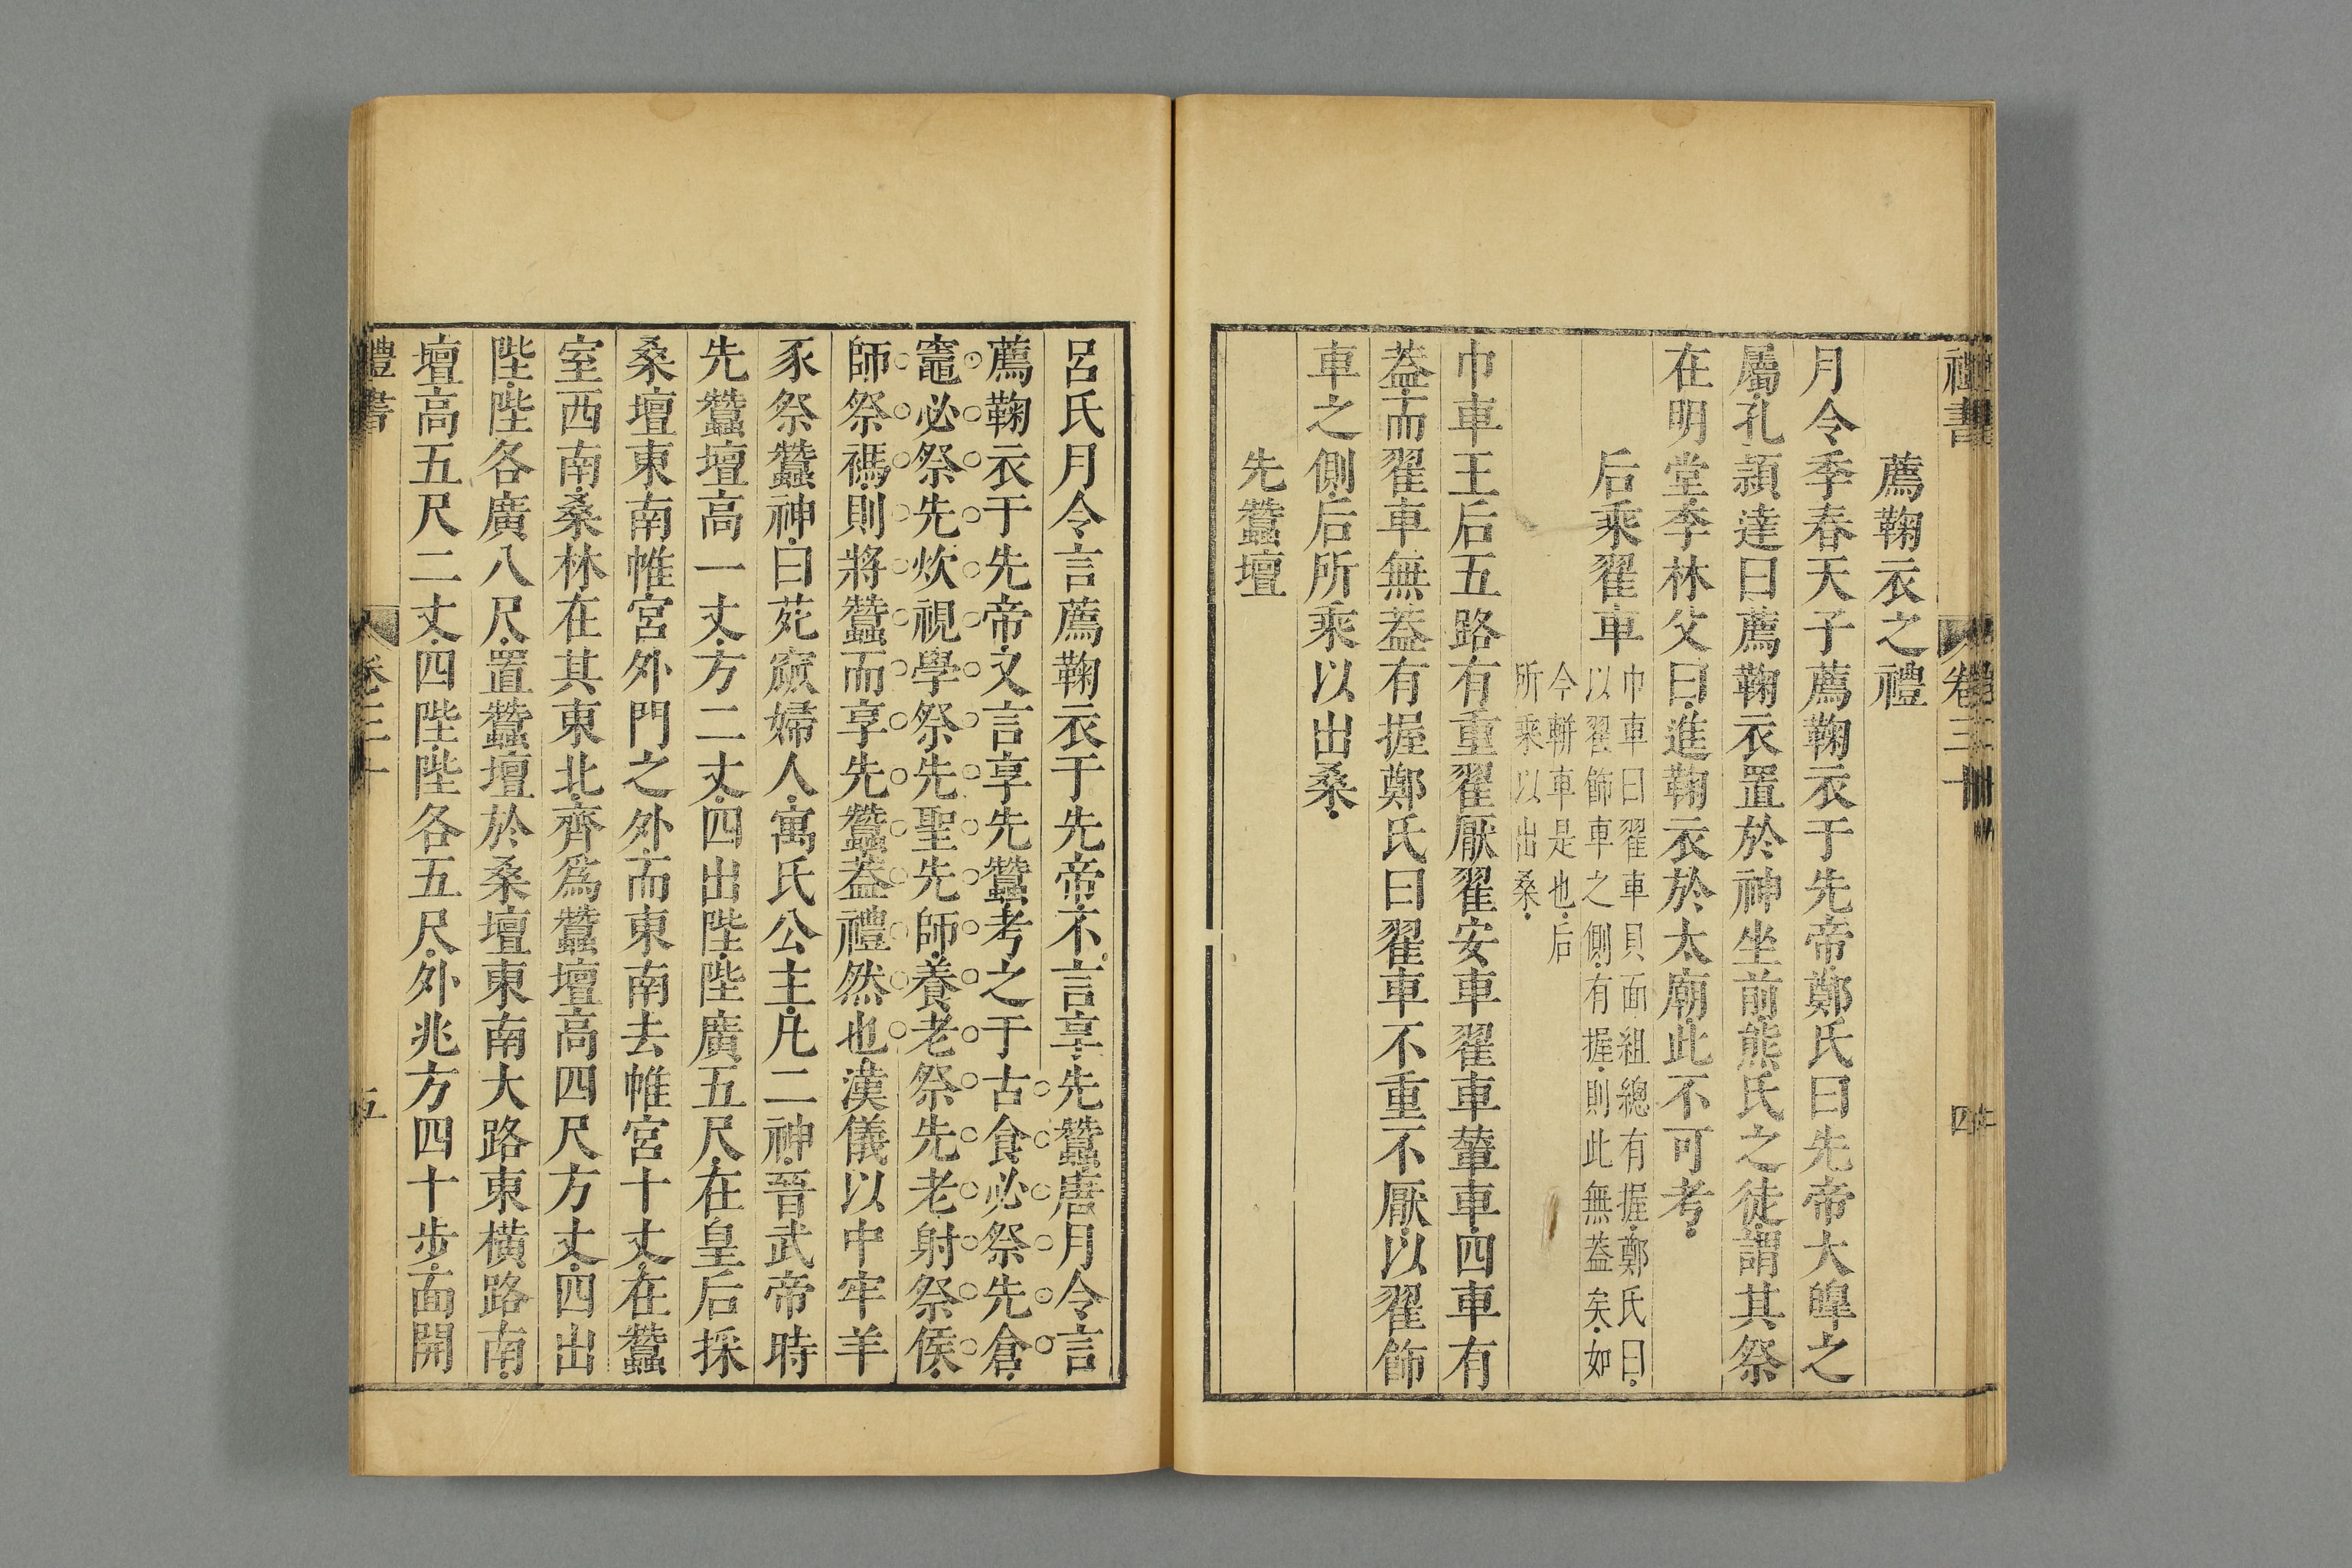 禮書
卷三十
四
薦鞠衣之禮
月令季春天子薦鞠衣于先帝鄭氏曰先帝大皥之
屬孔頴達曰薦鞠衣置於神坐前熊氏之徒謂其祭
在明堂李林父曰進鞠衣於太廟此不可考
后乘翟車
巾車曰翟車貝面組總有握鄭氏曰
以翟飾車之側有握則此無葢矣如
今輧車是也后
所乘以出桑
巾車王后五路有重翟厭翟安車翟車輦車四車有
葢而翟車無葢有握鄭氏曰翟車不重不厭以翟飾
車之側后所乘以出桑
先蠶壇
呂氏月令言薦鞠衣于先帝不言享先蠶唐月令言
薦鞠衣于先帝又言享先蠶考之于古食必祭先倉
竈必祭先炊視學祭先聖先師養老祭先老射祭侯
師祭禡則將蠶而享先蠶葢禮然也漢儀以中牢羊
豕祭蠶神曰苑窳婦人寓氏公主凡二神晉武帝時
先蠶壇高一丈方二丈四出陛陛廣五尺在皇后採
桑壇東南帷宮外門之外而東南去帷宮十丈在蠶
室西南桑林在其東北齊爲蠶壇高四尺方丈四出
陛陛各廣八尺置蠶壇於桑壇東南大路東橫路南
壇高五尺二丈四陛陛各五尺外兆方四十步面開
禮書
卷三十
五